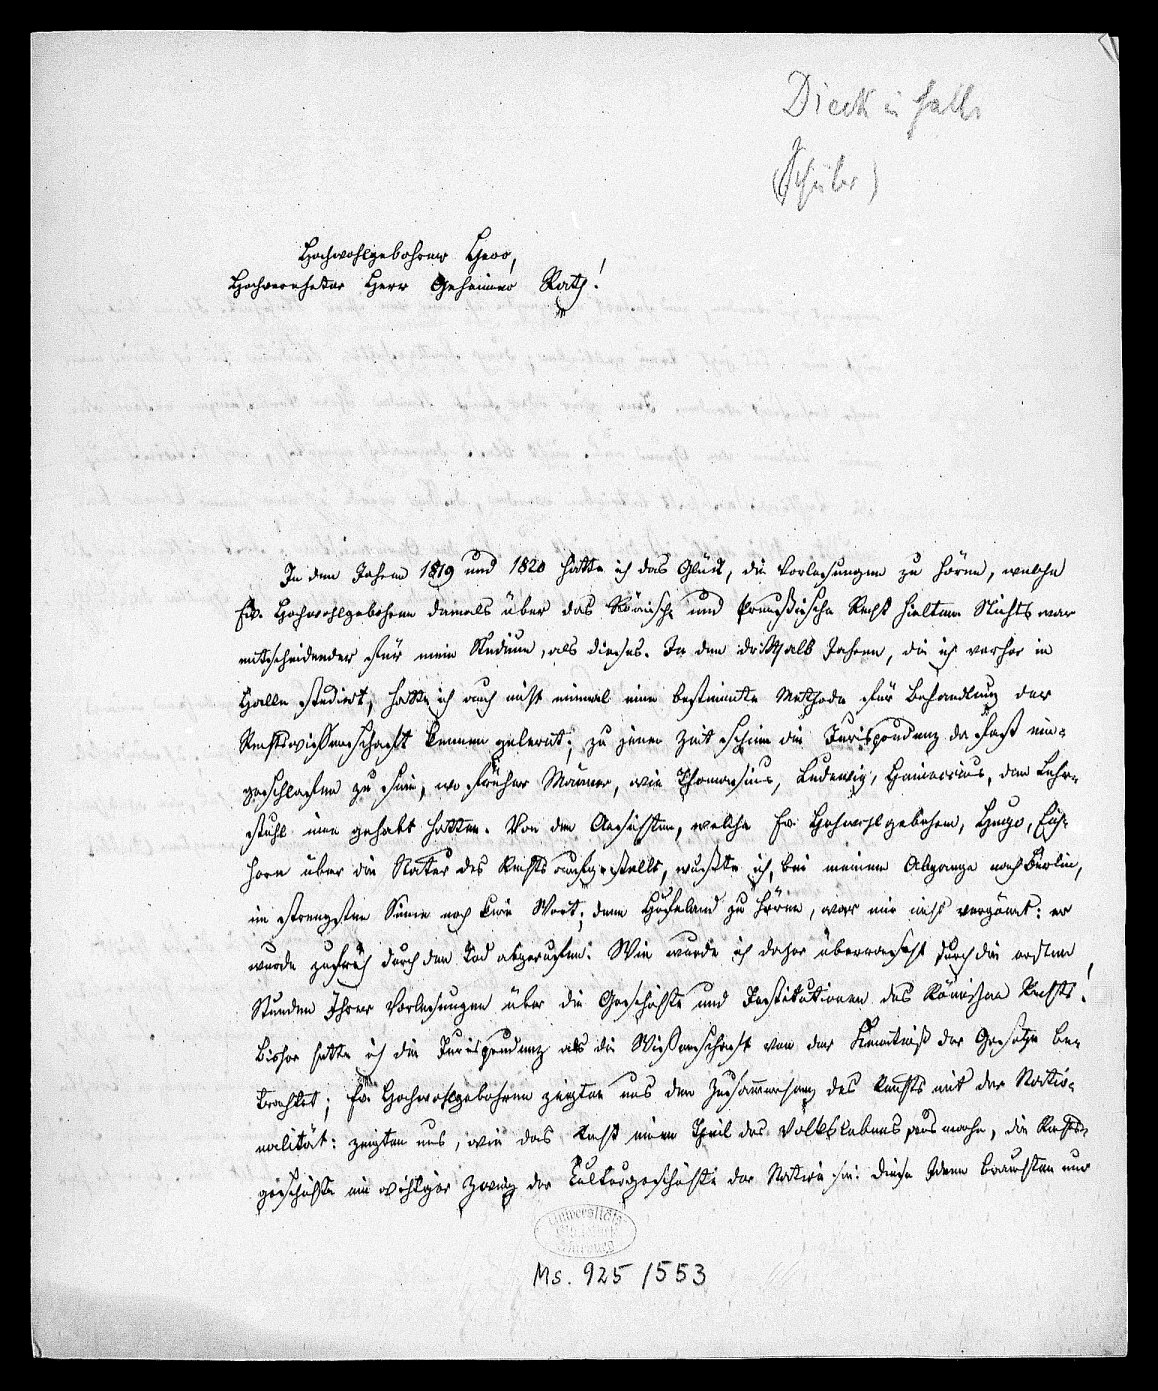 Dieck in Halle
(Schüler)
Hochwohlgebohrner Herr,
Hochverehrter Herr Geheimer Rath!
In den Jahren 1819 und 1820 hatte ich das Glück, die Vorlesungen zu hören, welche
Ew. Hochwohlgebohren damals über das Römische und Preußische Recht hielten. Nichts war
entscheidender für mein Studium, als dieses. In den dritthalb Jahren, die ich vorher in
Halle studiert, hatte ich auch nicht einmal eine bestimmte Methode für Behandlung der
Rechtswißenschaft kennen gelernt; zu jener Zeit schien die Jurisprudenz da fast ein-
geschlafen zu sein, wo früher Männer, wie Thomasius, Ludewig, Heineccius, den Lehr-
stuhl inne gehabt hatten. Von den Ansichten, welche Ew. Hochwohlgebohren, Hugo, Eich-
horn über die Natur des Rechts aufgestellt, wußte ich, bei meinem Abgange nach Berlin,
im strengsten Sinne noch kein Wort; denn Hufeland zu hören, war mir nicht vergönnt: er
wurde zufrüh durch den Tod abgerufen. Wie wurde ich daher überrascht durch die ersten
Stunden Ihrer Vorlesungen über die Geschichte und Institutionen des Römischen Rechts!
Bisher hatte ich die Jurisprudenz als die Wißenschaft von der Kenntniß der Gesetze be-
trachtet; Ew. Hochwohlgebohren zeigten uns den Zusammenhang des Rechts mit der Natio-
nalität: zeigten uns, wie das Recht einen Theil des Volkslebens ausmache, die Rechts-
geschichte ein wichtiger Zweig der Culturgeschichte der Nation sei. Diese Ideen brauchten nur
Ms. 925/553